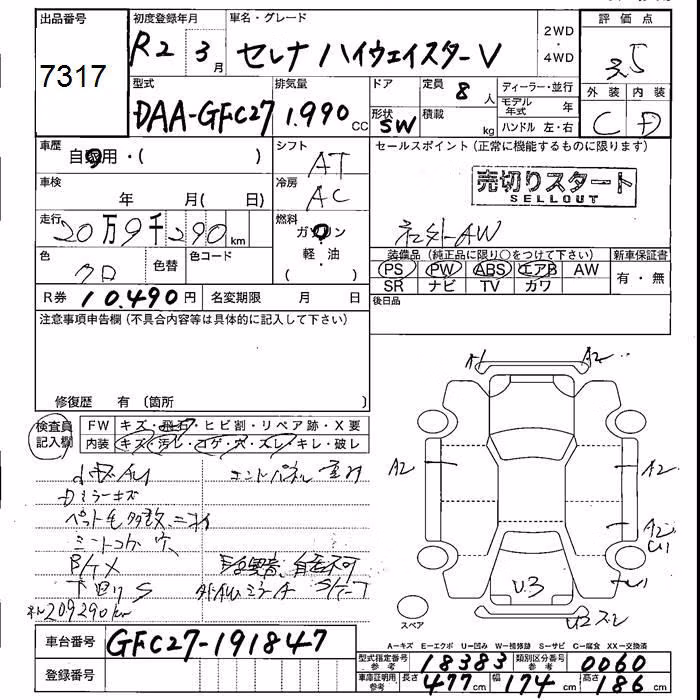 出品番号
7317
初度登録年月
R2 3月
車名・グレード
セレナ ハイウェイスターV
2WD
4WD
評価点
3.5
外装 内装
C D
型式
DAA-GFC27
排気量
1.990 CC
ドア
形状
SW
定員
8人
積載
kg
ディーラー・並行
モデル年式 年
ハンドル 左・右
車歴
自家用・( )
シフト
AT
セールスポイント(正常に機能するものに限ります)
売切りスタート
SELLOUT
車検
年 月( 日)
冷房
AC
走行
20万9千290km
燃料
ガソリン
軽・油
( )
AW
色
クロ
色替
色コード
装備品(純正品に限り○をつけて下さい)
PS PW ABS エアB AW
SR ナビ TV カワ
新車保証書
有・無
R券 10.490円
名変期限 月 日
後日品
注意事項申告欄(不具合内容等は具体的に記入して下さい)
修復歴 有(箇所 )
検査員記入欄
FW キズ・飛石・ヒビ割・リペア跡・X要
内装 キズ・汚レ・コゲ・穴・ズレ・キレ・破レ
Dミラーキズ
下回りS
209290km
A1 A2
A2 A2
A2
U1
U1
U3
U2ズレ
スペア
車台番号
GFC27-191847
登録番号
A-キズ E-エクボ U-凹み W-補修跡 S-サビ C-腐食 XX-交換済
型式指定番号参考 18383
類別区分番号参考 0060
車庫証明用参考 長さ 477cm 幅 174cm 高さ 186cm